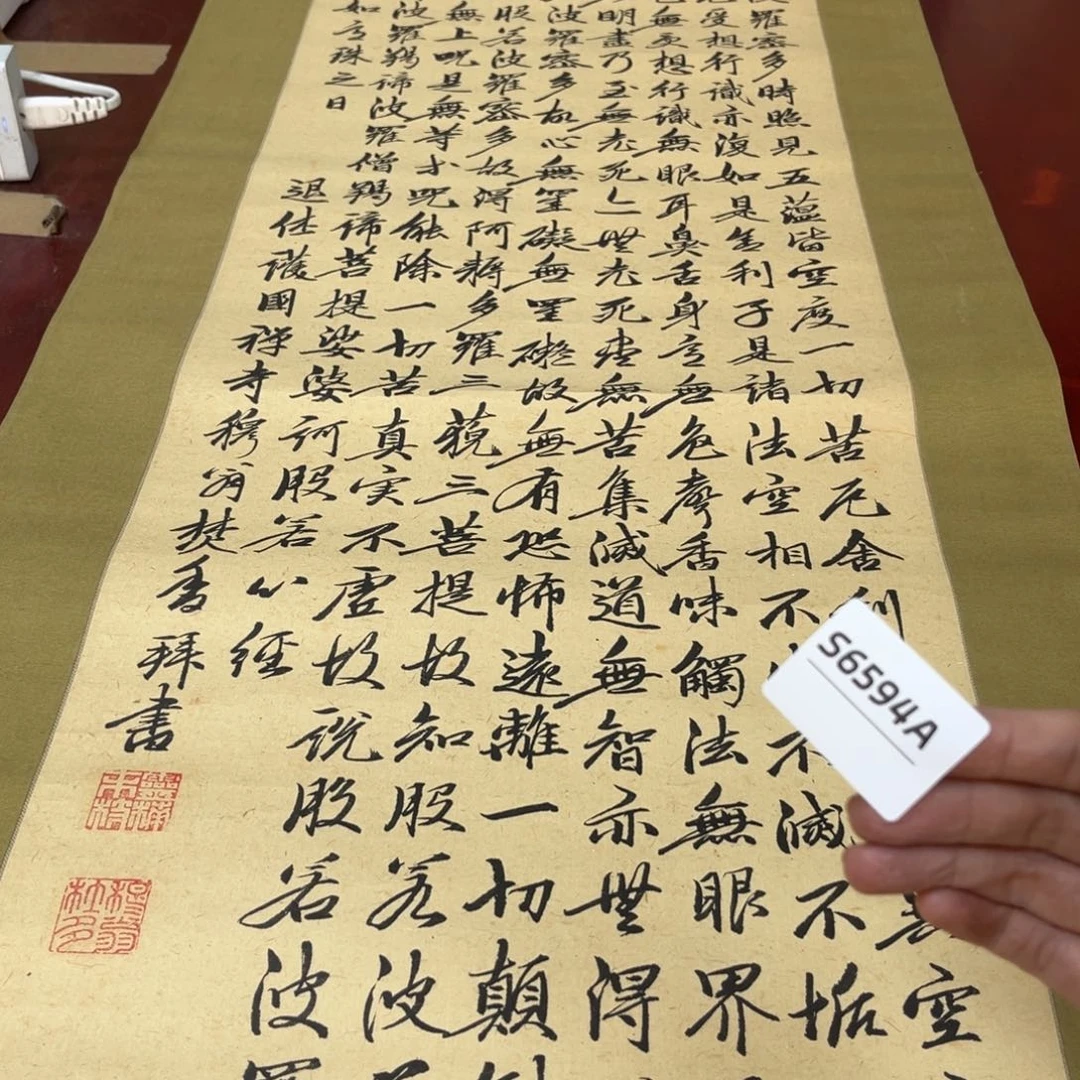 羅密多時照見五蘊皆空度一切苦厄舍利
空
受想行識亦復如是舍利子是諸法空相不
不滅不垢
無受想行識無眼耳鼻舌身意無色聲香味觸法無眼界
明盡乃至無老死亡無老死盡無苦集滅道無智亦無得
波羅密多故心無罣礙無罣礙故無有恐怖遠離一切顛
般若波羅密多故得阿耨多羅三藐三菩提故知般若波
無上呪是無等等呪能除一切苦真实不虛故說般若波羅
波羅羯諦波羅僧羯諦菩提娑婆訶般若心經
如意珠之日
退休護國禅寺穆翁焚香拜書
S6594A